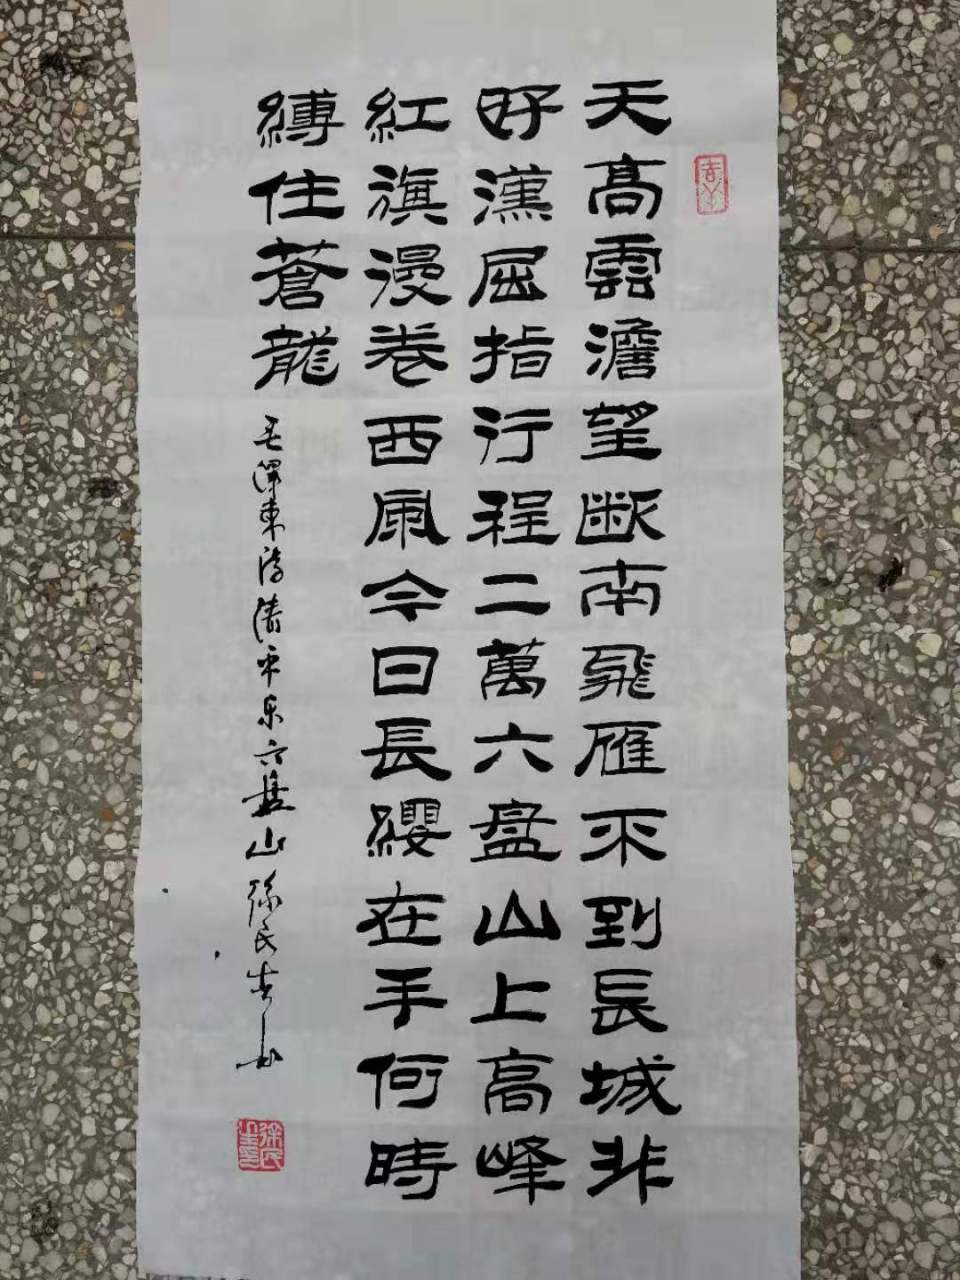 天高雲澹望斷南飛雁不到長城非
好漢屈指行程二萬六盘山上高峰
紅旗漫卷西風今日長纓在手何時
縛住蒼龍
毛澤東詩清平乐六盘山徐民安书